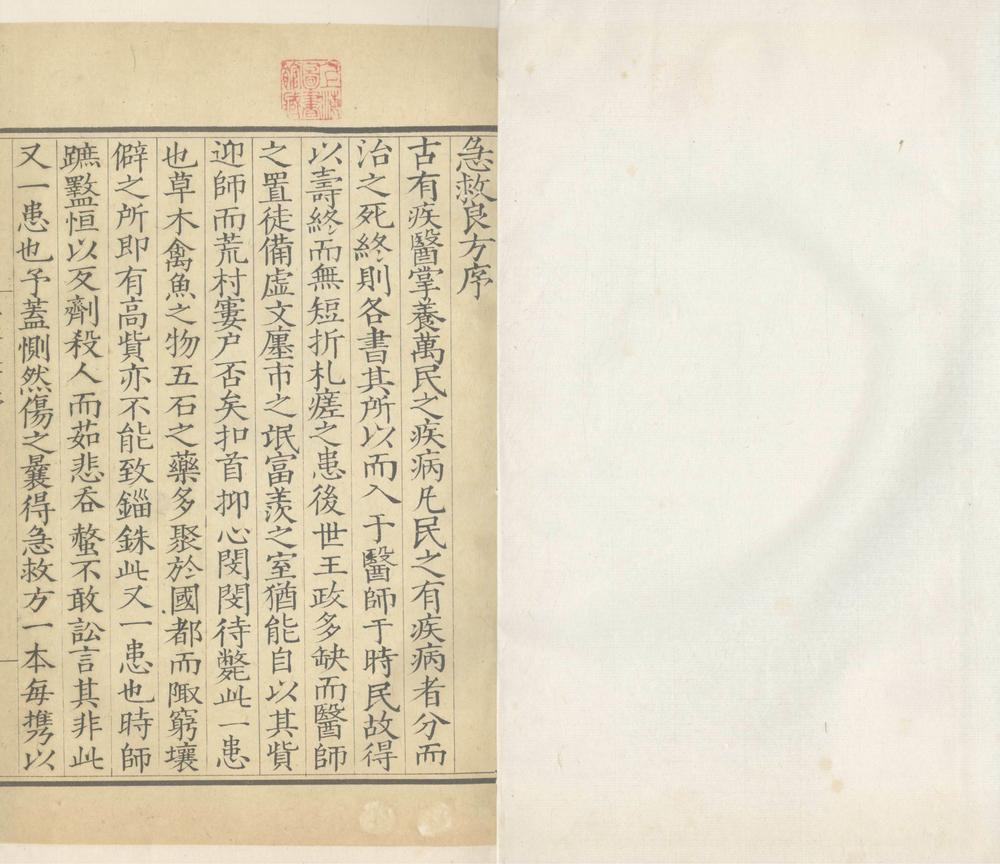 急救良方序
古有疾醫掌養萬民之疾病凡民之有疾病者分而
治之死終則各書其所以而入于醫師于時民故得
以壽終而無短折札瘥之患後世王政多缺而醫師
之置徒備虛文廛市之氓富羡之室猶能自以其貲
迎師而荒村寠户否矣扣首抑心閔閔待斃此一患
也草木禽魚之物五石之藥多聚於國都而陬窮壤
僻之所即有高貲亦不能致錙銖此又一患也時師
蹠盭恒以反劑殺人而茹悲吞螫不敢訟言其非此
又一患也予蓋惻然傷之曩得急救方一本每携以
上海
圖書
館藏